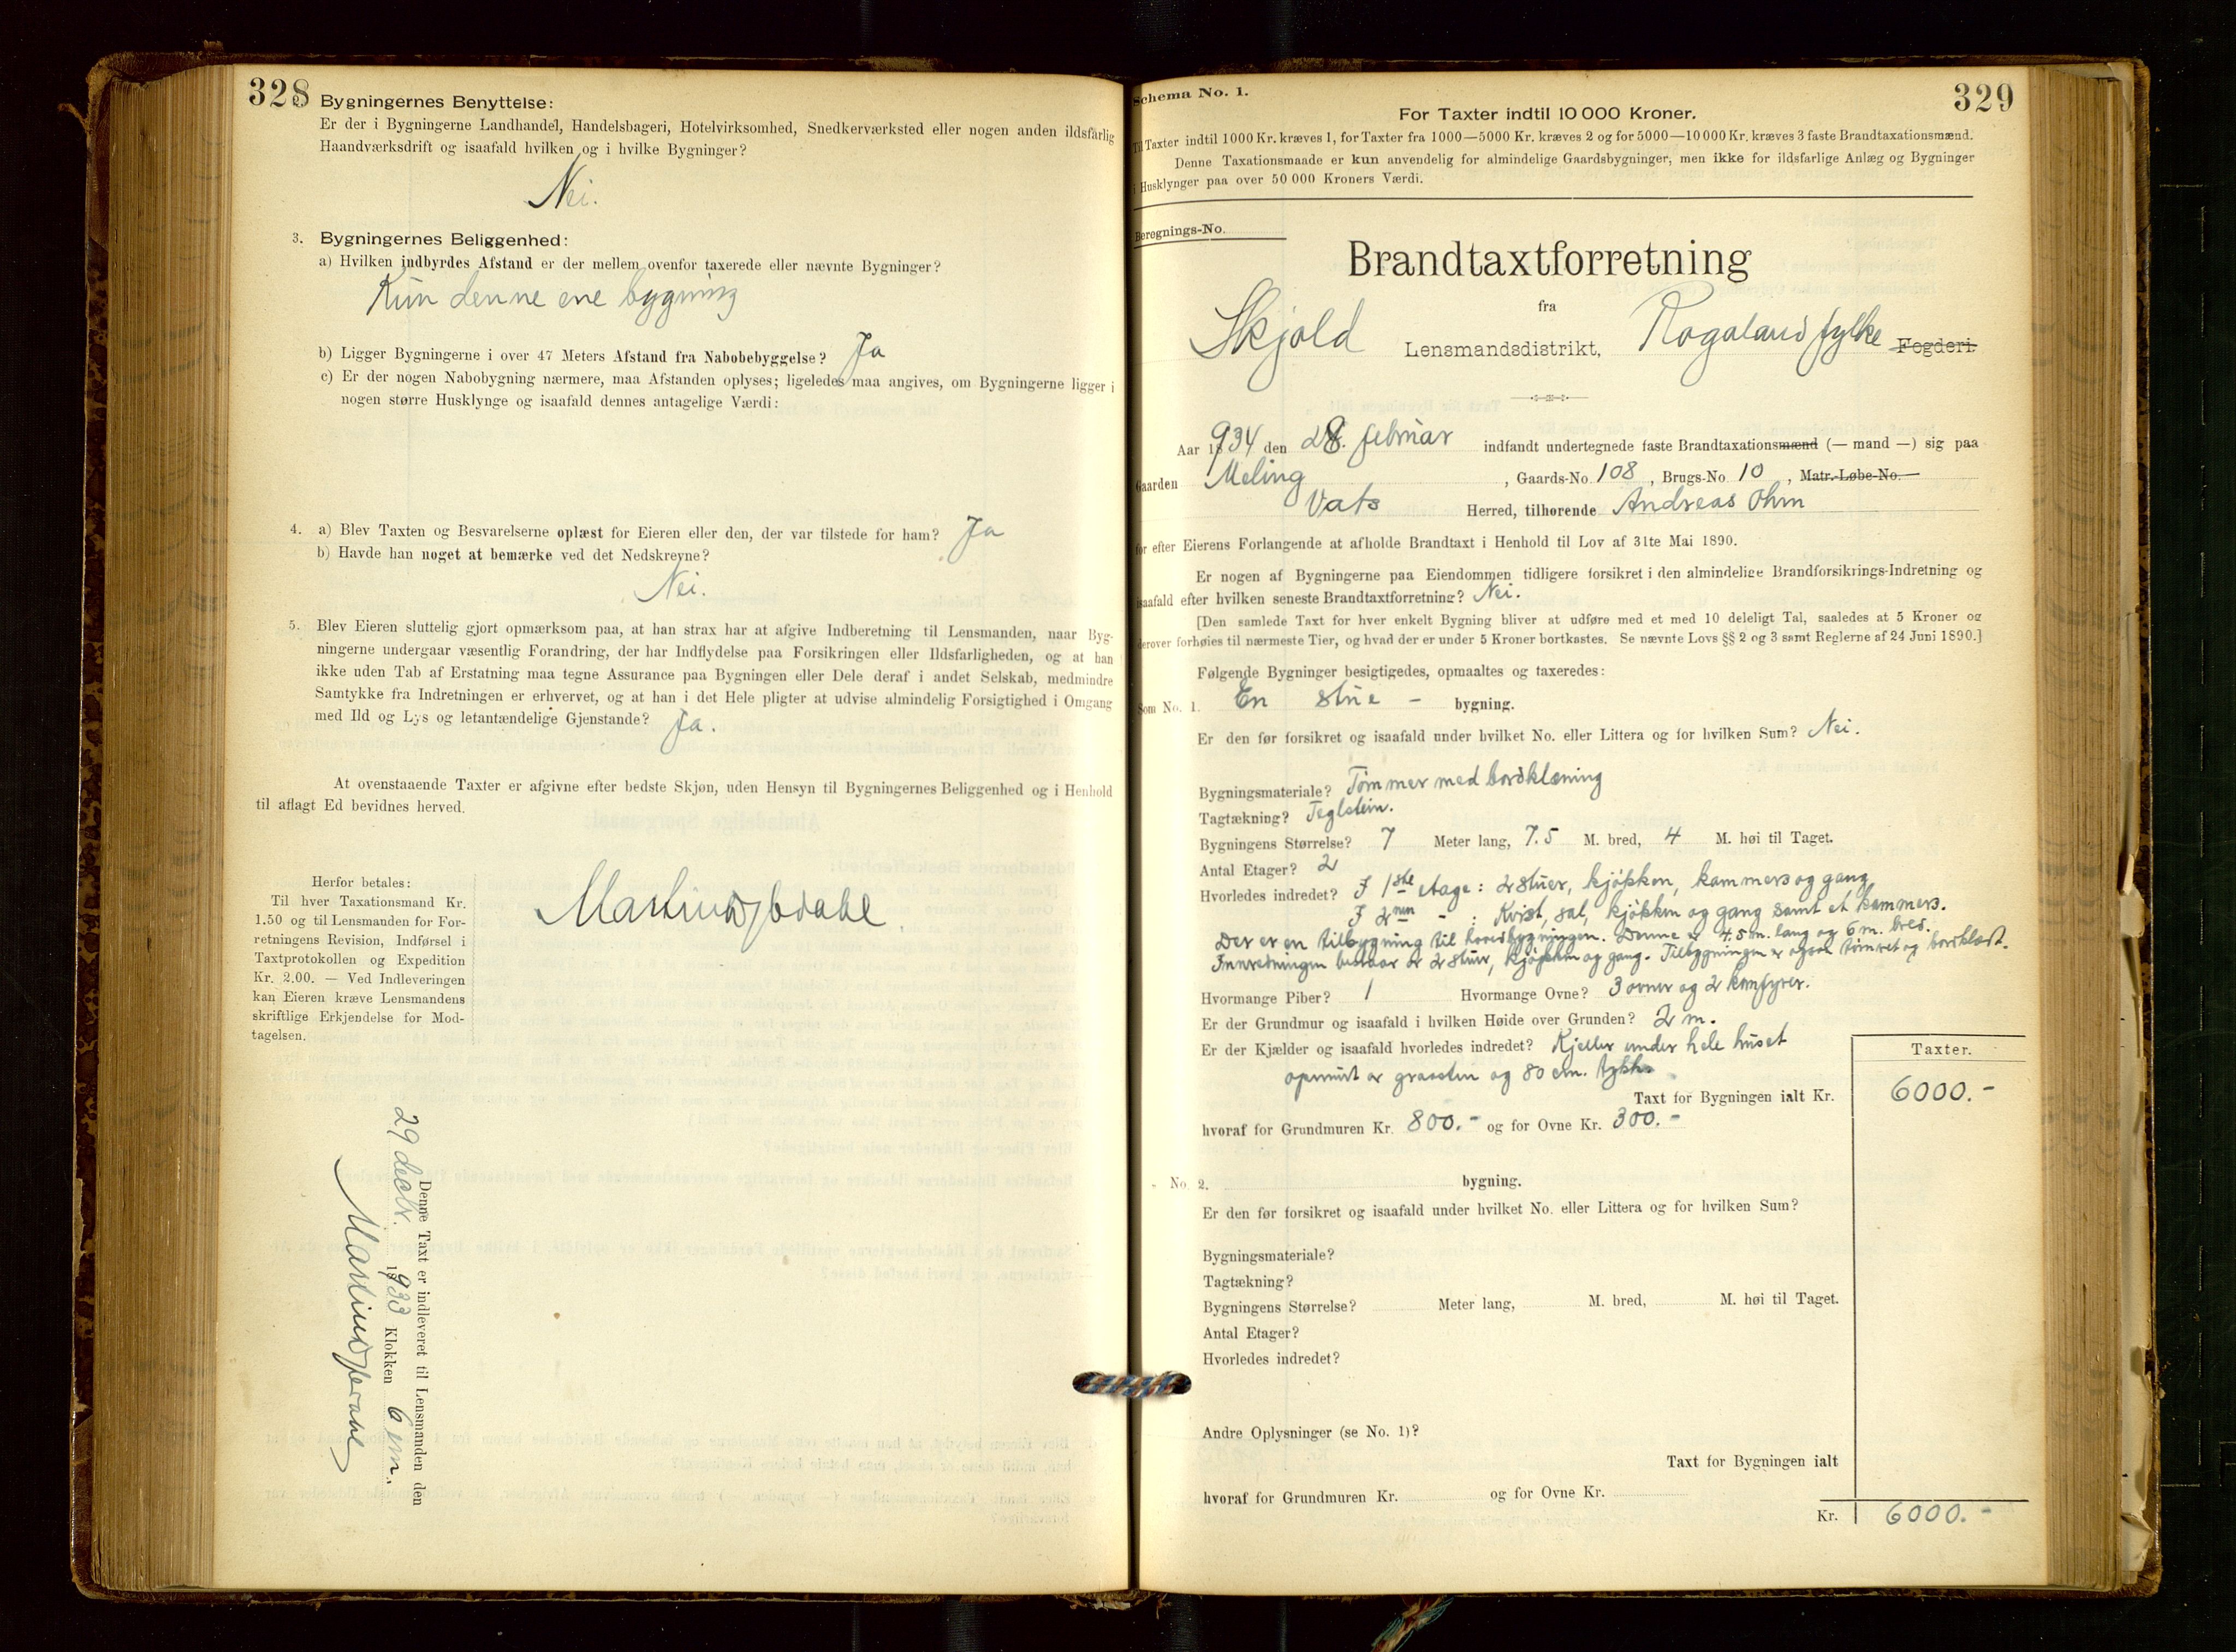 328
Bygningernes Benyttelse:
Er der i Bygningerne Landhandel, Handelsbageri, Hotelvirksomhed, Snedkerværksted eller nogen anden ildsfarlig
Haandværksdrift og isaafald hvilken og i hvilke Bygninger?
Nei.
3. Bygningernes Beliggenhed:
a) Hvilken indbyrdes Afstand er der mellem ovenfor taxerede eller nævnte Bygninger?
Kun denne ene bygning
b) Ligger Bygningerne i over 47 Meters Afstand fra Nabobebyggelse? Ja
c) Er der nogen Nabobygning nærmere, maa Afstanden oplyses; ligeledes maa angives, om Bygningerne ligger i
nogen større Husklynge og isaafald dennes antagelige Værdi:
4. a) Blev Taxten og Besvarelserne oplæst for Eieren eller den, der var tilstede for ham? Ja
b) Havde han noget at bemærke ved det Nedskrevne?
Nei.
5. Blev Eieren sluttelig gjort opmærksom paa, at han strax har at afgive Indberetning til Lensmanden, naar Byg-
ningerne undergaar væsentlig Forandring, der har Indflydelse paa Forsikringen eller Ildsfarligheden, og at han
ikke uden Tab af Erstatning maa tegne Assurance paa Bygningen eller Dele deraf i andet Selskab, medmindre
Samtykke fra Indretningen er erhvervet, og at han i det Hele pligter at udvise almindelig Forsigtighed i Omgang
med Ild og Lys og letantændelige Gjenstande? Ja.
At ovenstaaende Taxter er afgivne efter bedste Skjøn, uden Hensyn til Bygningernes Beliggenhed og i Henhold
til aflagt Ed bevidnes herved.
Herfor betales:
Til hver Taxationsmand Kr.
1.50 og til Lensmanden for For-
retningens Revision, Indførsel i
Taxtprotokollen og Expedition
Kr. 2.00. — Ved Indleveringen
kan Eieren kræve Lensmandens
skriftlige Erkjendelse for Mod-
tagelsen.
Denne Taxt er indleveret til Lensmanden den
29 decbr. 1933 Klokken 6 em.
329
Schema No. 1.
For Taxter indtil 10 000 Kroner.
Til Taxter indtil 1000 Kr. kræves 1, for Taxter fra 1000—5000 Kr. kræves 2 og for 5000—10 000 Kr. kræves 3 faste Brandtaxationsmænd.
Denne Taxationsmaade er kun anvendelig for almindelige Gaardsbygninger, men ikke for ildsfarlige Anlæg og Bygninger
i Husklynger paa over 50 000 Kroners Værdi.
Beregnings-No.
Brandtaxtforretning
fra
Skjold Lensmandsdistrikt, Rogaland fylke Fogderi.
Aar 1934 den 28. februar indfandt undertegnede faste Brandtaxationsmænd (— mand —) sig paa
Gaarden Meling, Gaards-No. 108, Brugs-No 10, Matr.-Løbe-No.
Vats Herred, tilhørende Andreas Ohm
for efter Eierens Forlangende at afholde Brandtaxt i Henhold til Lov af 31te Mai 1890.
Er nogen af Bygningerne paa Eiendommen tidligere forsikret i den almindelige Brandforsikrings-Indretning og
isaafald efter hvilken seneste Brandtaxtforretning? Nei.
[Den samlede Taxt for hver enkelt Bygning bliver at udføre med et med 10 deleligt Tal, saaledes at 5 Kroner og
derover forhøies til nærmeste Tier, og hvad der er under 5 Kroner bortkastes. Se nævnte Lovs §§ 2 og 3 samt Reglerne af 24 Juni 1890.]
Følgende Bygninger besigtigedes, opmaaltes og taxeredes:
Som No. 1. En stue - bygning.
Er den før forsikret og isaafald under hvilket No. eller Littera og for hvilken Sum? Nei.
Bygningsmateriale? Tømmer med bordklæning
Tagtækning? Teglstein.
Bygningens Størrelse? 7 Meter lang, 7.5 M. bred, 4 M. høi til Taget.
Antal Etager? 2
Hvorledes indredet? I 1ste etage: 2 stuer, kjøkken, kammers og gang
I 2nen - : Kvist, sal, kjøkken og gang samt et kammers.
Der er en tilbygning til hovedbygningen. Denne er 4.5 m. lang og 6 m. bred.
Innredningen bestaar av 2 stuer, kjøkken og gang. Tilbygningen er ogsaa tømret og bordklæt.
Hvormange Piber? 1 Hvormange Ovne? 3 ovner og 2 komfyrer.
Er der Grundmur og isaafald i hvilken Høide over Grunden? 2 m.
Er der Kjælder og isaafald hvorledes indredet? Kjeller under hele huset
opmurt av graasten og 80 cm. tykk.
Taxter.
Taxt for Bygningen ialt Kr. 6000.-
hvoraf for Grundmuren Kr. 800.- og for Ovne Kr. 300.-
No. 2. bygning.
Er den før forsikret og isaafald under hvilket No. eller Littera og for hvilken Sum?
Bygningsmateriale?
Tagtækning?
Bygningens Størrelse? Meter lang, M. bred, M. høi til Taget.
Antal Etager?
Hvorledes indredet?
Andre Oplysninger (se No. 1)?
Taxt for Bygningen ialt
hvoraf for Grundmuren Kr. og for Ovne Kr.
Kr. 6000.-